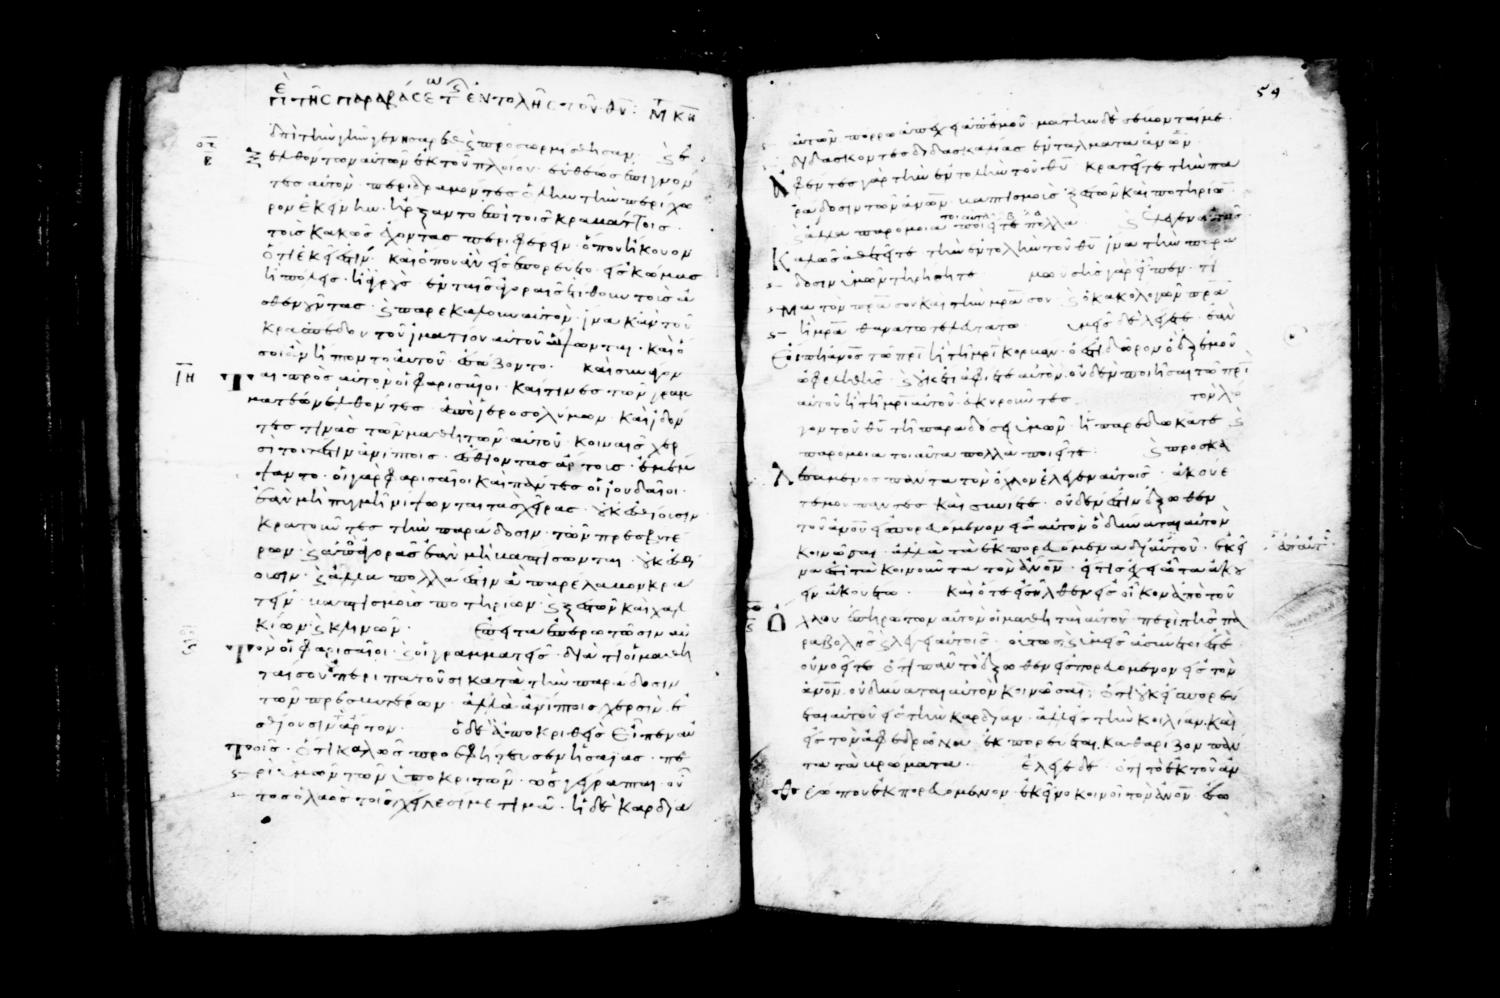 ἐπὶ τῆς παραβάσεως τῆς ἐντολῆς τοῦ θυ
ἐπὶ τὴν γῆν γενησαρὲθ ϗ προσωρμίσθησαν· ϗ ἐ
ξελθόντων αὐτῶν ἐκ τοῦ πλοίου· εὐθέως ἐπιγνόν
τες αὐτὸν· περιδραμόντες ὅλην τὴν περίχω
ρον ἐκείνην· ἤρξαντο ἐπὶ τοῖς κραβάττοις·
τοὺς κακῶς ἔχοντας περιφέρειν· ὅπου ἤκουον
ὅτι ἐκεῖ ἐστίν· καὶ ὅπου ἂν εἰσεπορεύετο· εἰς κώμας
ἢ πόλεις· ἢ ἀγροὺς ἐν ταῖς ἀγοραῖς ἐτίθουν τοὺς ἀ
σθενοῦντας· ϗ παρεκάλουν αὐτὸν· ἵνα κἂν τοῦ
κρασπέδου τοῦ ἱματίου αὐτοῦ ἅψωνται· καὶ ὅ
σοι ἂν ἥπτοντο αὐτοῦ ἐσώζοντο· καὶ συνάγον
ιη ται πρὸς αὐτὸν οἱ φαρισαῖοι· καί τινες τῶν γραμ
ματέων ἐλθόντες· ἀπὸ ἱεροσολύμων· καὶ ἰδόν
τες τινὰς τῶν μαθητῶν αὐτοῦ· κοιναῖς χερ
σὶ τουτέστιν ἀνίπτοις· ἐσθίοντας ἄρτους· ἐμέμ
ψαντο· οἱ γὰρ φαρισαῖοι καὶ πάντες οἱ ἰουδαῖοι·
ἐὰν μὴ πυγμῆ νίψωνται τὰς χεῖρας· οὐκ ἐσθίουσιν
κρατοῦντες τὴν παράδοσιν· τῶν πρεσβυτέ
ρων· ϗ ἀπὸ ἀγορᾶς ἐὰν μὴ βαπτίσωνται οὐκ ἐσθί
ουσιν· ϗ ἄλλα πολλά ἐστιν ἃ παρέλαβον κρα
τεῖν· βαπτισμοὺς ποτηρίων· ϗ ξεστῶν καὶ χαλ
κίων ϗ κλινῶν· ἔπειτα ἐπερωτῶσιν αὐ
τὸν οἱ φαρισαῖοι· ϗ οἱ γραμματεῖς· διὰ τί οἱ μαθη
ταί σου οὐ περιπατοῦσι κατὰ τὴν παράδοσιν
τῶν πρεσβυτέρων· ἀλλὰ ἀνίπτοις χερσὶν ἐ
σθίουσιν ἄρτον· ὁ δὲ ἀποκριθεὶς εἶπεν αὐ
τοῖς· ὅτι καλῶς προεφήτευσεν ἡσαΐας· πε
ρὶ ὑμῶν τῶν ὑποκριτῶν· ὡς γέγραπται· οὗ
τος ὁ λαὸς τοῖς χείλεσί με τιμᾶ· ἡ δὲ καρδία
54
αὐτῶν πόρρω ἀπέχει ἀπ' ἐμοῦ· μάτην δὲ σέβονταί με·
διδάσκοντες διδασκαλίας ἐντάλματα ἀνων
ἀφέντες γὰρ τὴν ἐντολὴν τοῦ θυ κρατεῖτε τὴν πα
ράδοσιν τῶν ἀνων· βαπτισμοὺς ξεστῶν καὶ ποτηρίων
ϗ ἄλλα παρόμοια τοιαῦτα ποιεῖτε πολλά· ϗ ἔλεγεν αὐτοῖς·
καλῶς ἀθετεῖτε τὴν ἐντολὴν τοῦ θυ ἵνα τὴν παρά
δοσιν ὑμῶν τηρήσητε μωυσῆς γὰρ εἶπεν· τί
μα τὸν πρα σου καὶ τὴν μρα σου ϗ ὁ κακολογῶν πρα
ἢ μρα θανάτω τελευτάτω ὑμεῖς δὲ λέγετε· ἐὰν
εἴπη ἄνος τῶ πρι ἢ τῆ μρι κορβαν· ὅ ἐστι δῶρον ὃ ἐὰν ἐξ ἐμοῦ
ὠφεληθῆς· ϗ οὐκέτι ἀφίετε αὐτὸν οὐδὲν ποιῆσαι τῶ πρι
αὐτοῦ ἢ τῆ μρι αὐτοῦ ἀκυροῦντες τὸν λό
γον τοῦ θυ τῆ παραδόσει ὑμῶν· ἧ παρεδώκατε ϗ
παρόμοια τοιαῦτα πολλὰ ποιεῖτε· ϗ προσκα
λεσάμενος πάντα τὸν ὄχλον ἔλεγεν αὐτοῖς· ἀκούε
τέ μου πάντες καὶ συνίετε· οὐδέν ἐστιν ἔξωθεν
τοῦ ἀνου εἰσπορευόμενον εἰς αὐτὸν ὃ δύναται αὐτὸν
κοινῶσαι· ἀλλὰ τὰ ἐκπορευόμενα ἀπ' αὐτοῦ· ἐκεῖ
νά ἐστι τὰ κοινοῦντα τὸν ἄνον· εἴ τις ἔχει ὦτα ἀκού
ειν ἀκουέτω· καὶ ὅτε εἰσῆλθεν εἰς οἶκον ἀπὸ τοῦ
ὄχλου ἐπηρώτων αὐτὸν οἱ μαθηταὶ αὐτοῦ περὶ τῆς πα
ραβολῆς ϗ λέγει αὐτοῖς· οὕτως ϗ ὑμεῖς ἀσύνετοί ἐστε·
οὐ νοεῖτε ὅτι πᾶν τὸ ἔξωθεν εἰσπορευόμενον εἰς τὸν
ἄνον οὐ δύναται αὐτὸν κοινῶσαι· ὅτι οὐκ εἰσπορεύ
εται αὐτοῦ εἰς τὴν καρδίαν· ἀλλ' εἰς τὴν κοιλίαν· καὶ
εἰς τὸν ἀφεδρῶνα ἐκπορεύεται καθαρίζον πάν
τα τὰ βρώματα· ἔλεγε δὲ· ὅτι τὸ ἐκ τοῦ ἀν
ου ἐκπορευόμενον ἐκεῖνο κοινοῖ τὸν ἄνον· ἔσω